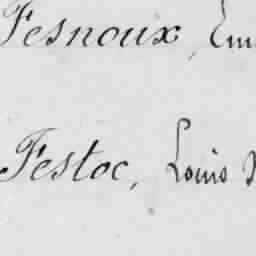 Fesnoux, Em
Festoc, Louis